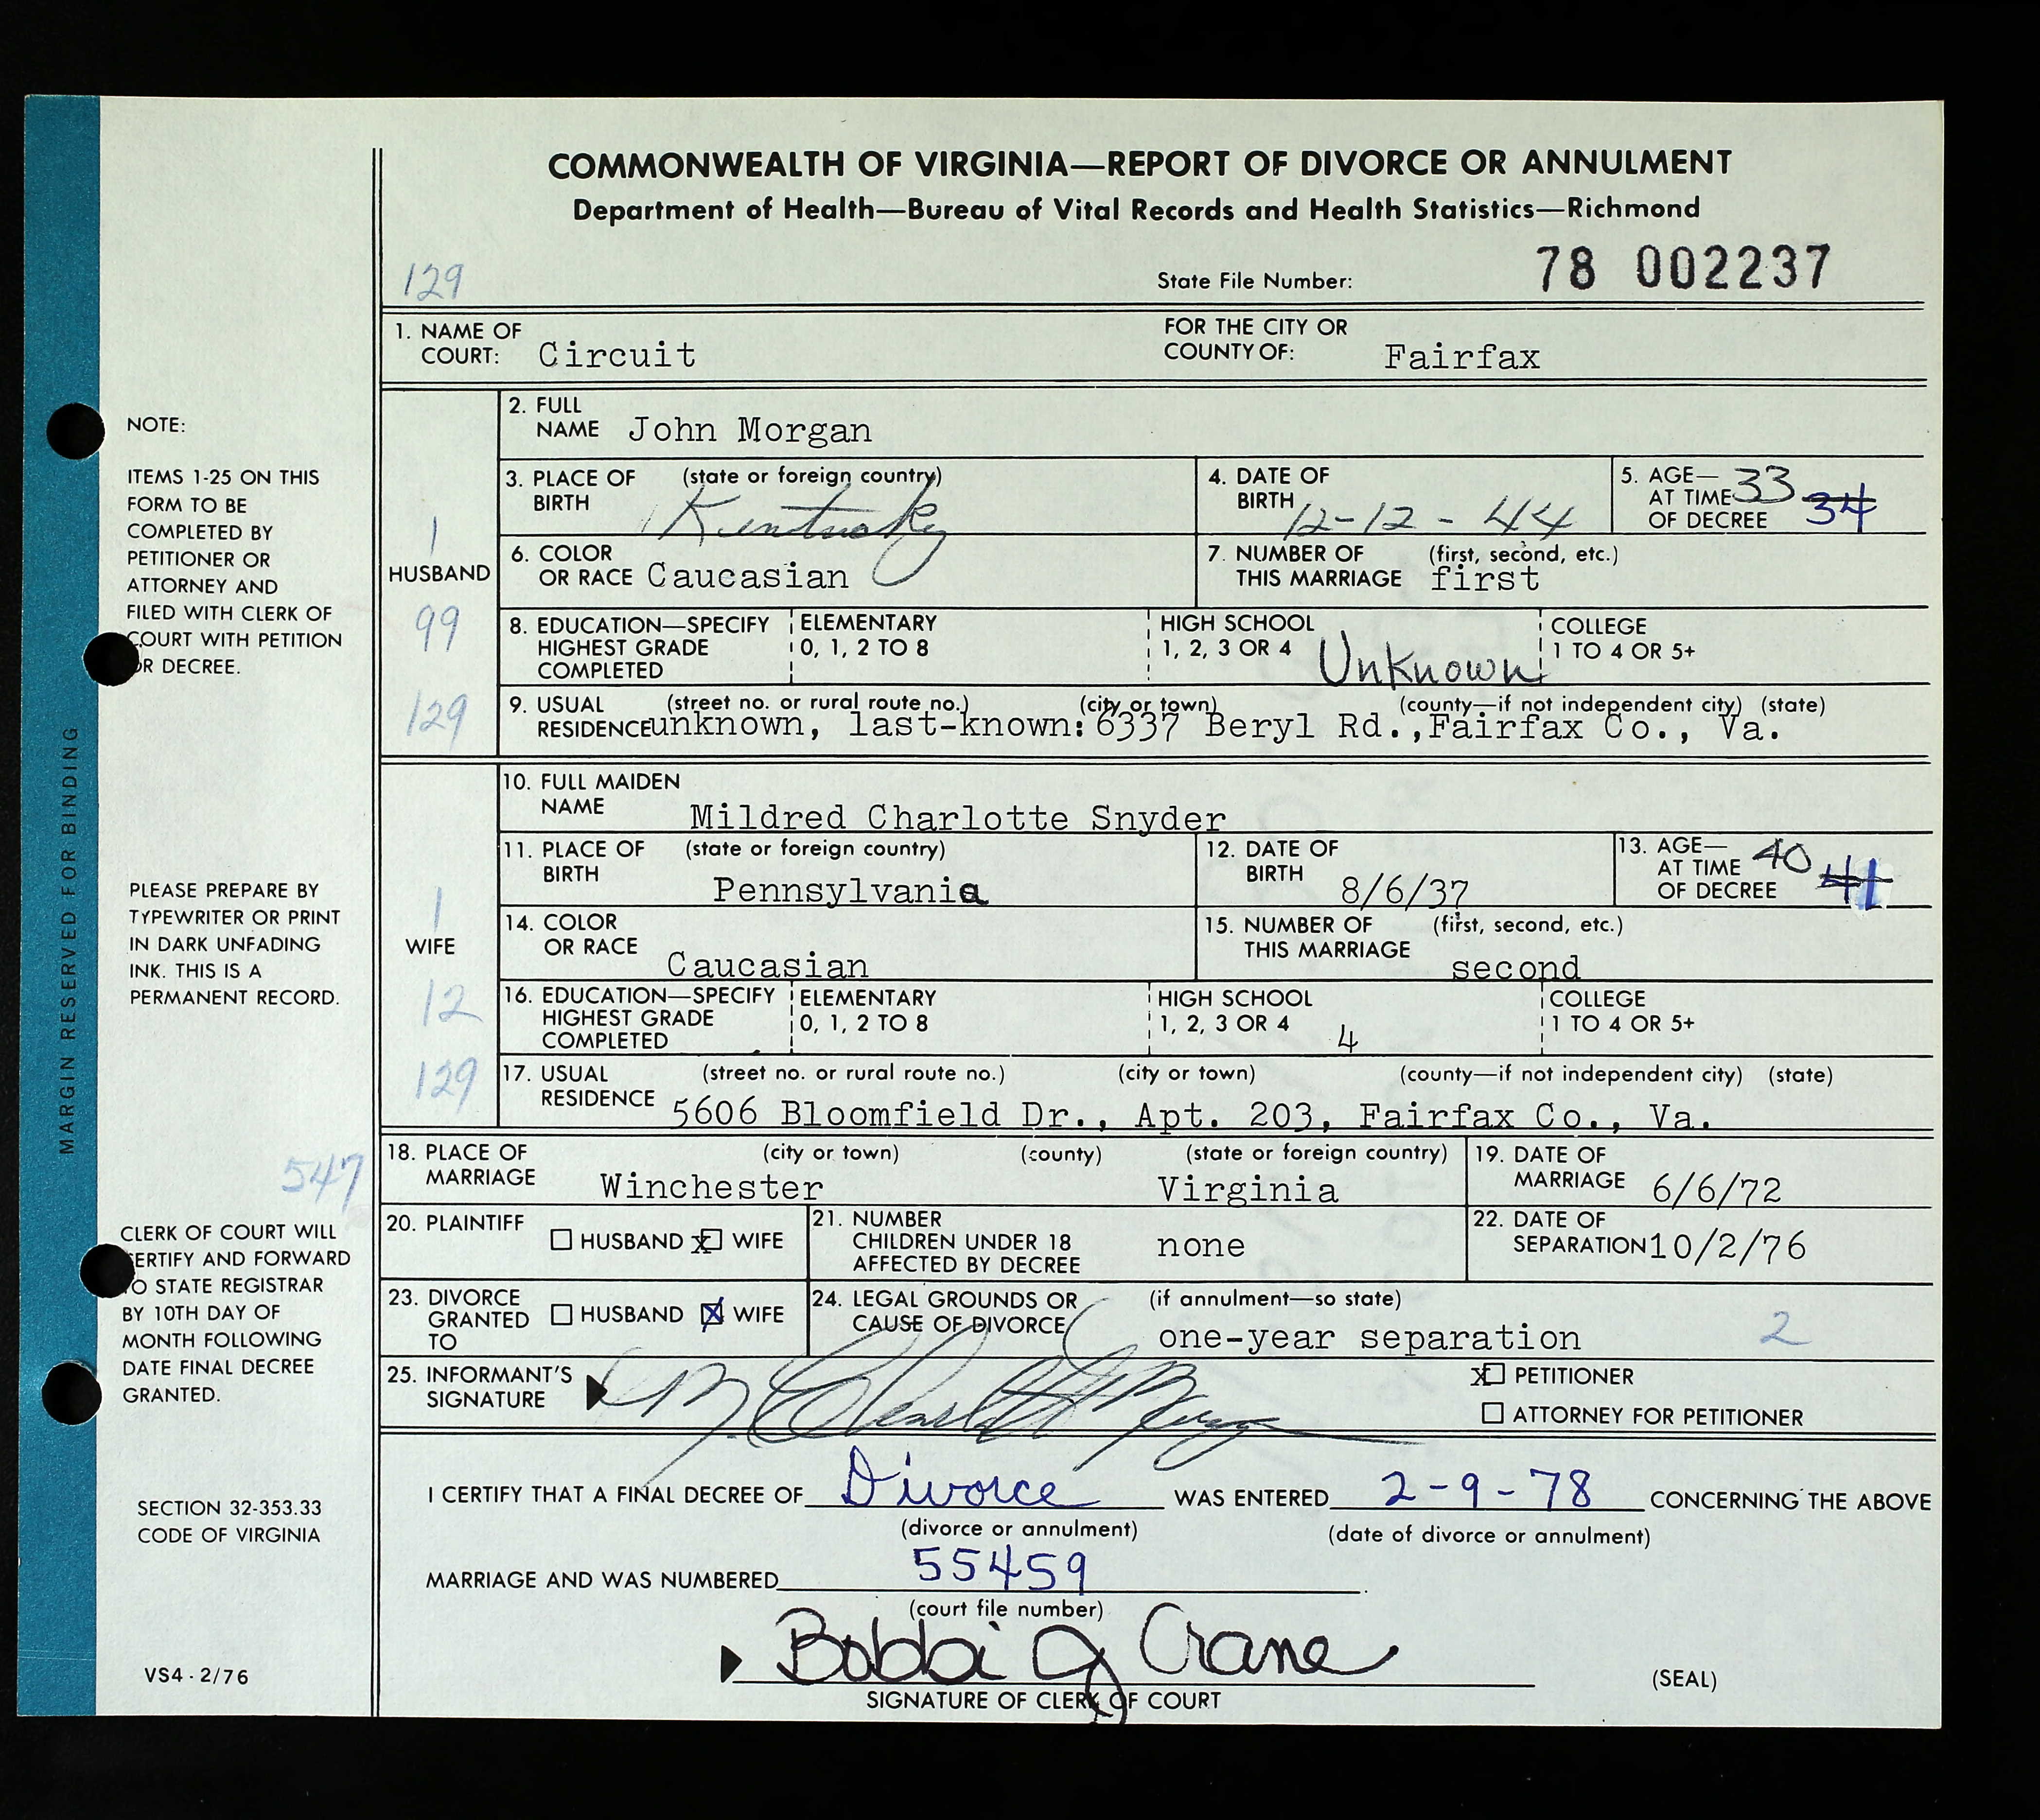 COMMONWEALTH OF VIRGINIA—REPORT OF DIVORCE OR ANNULMENT
Department of Health—Bureau of Vital Records and Health Statistics—Richmond
129
State File Number: 78 002237
1. NAME OF COURT: Circuit
FOR THE CITY OR COUNTY OF: Fairfax
HUSBAND
1
99
129
2. FULL NAME John Morgan
3. PLACE OF BIRTH (state or foreign country) Kentucky
4. DATE OF BIRTH 12-12-44
5. AGE—AT TIME OF DECREE 33 34
6. COLOR OR RACE Caucasian
7. NUMBER OF THIS MARRIAGE (first, second, etc.) first
8. EDUCATION—SPECIFY HIGHEST GRADE COMPLETED
ELEMENTARY 0, 1, 2 TO 8
HIGH SCHOOL 1, 2, 3 OR 4 Unknown
COLLEGE 1 TO 4 OR 5+
9. USUAL RESIDENCE (street no. or rural route no.) (city or town) (county—if not independent city) (state)
unknown, last-known: 6337 Beryl Rd., Fairfax Co., Va.
WIFE
1
12
129
10. FULL MAIDEN NAME Mildred Charlotte Snyder
11. PLACE OF BIRTH (state or foreign country) Pennsylvania
12. DATE OF BIRTH 8/6/37
13. AGE—AT TIME OF DECREE 40 41
14. COLOR OR RACE Caucasian
15. NUMBER OF THIS MARRIAGE (first, second, etc.) second
16. EDUCATION—SPECIFY HIGHEST GRADE COMPLETED
ELEMENTARY 0, 1, 2 TO 8
HIGH SCHOOL 1, 2, 3 OR 4 4
COLLEGE 1 TO 4 OR 5+
17. USUAL RESIDENCE (street no. or rural route no.) (city or town) (county—if not independent city) (state)
5606 Bloomfield Dr., Apt. 203, Fairfax Co., Va.
547
18. PLACE OF MARRIAGE (city or town) (county) (state or foreign country)
Winchester Virginia
19. DATE OF MARRIAGE 6/6/72
20. PLAINTIFF HUSBAND X WIFE
21. NUMBER CHILDREN UNDER 18 AFFECTED BY DECREE none
22. DATE OF SEPARATION 10/2/76
23. DIVORCE GRANTED TO HUSBAND X WIFE
24. LEGAL GROUNDS OR CAUSE OF DIVORCE (if annulment—so state) one-year separation 2
25. INFORMANT'S SIGNATURE M. Charlotte Morgan
X PETITIONER
ATTORNEY FOR PETITIONER
I CERTIFY THAT A FINAL DECREE OF Divorce WAS ENTERED 2-9-78 CONCERNING THE ABOVE
(divorce or annulment) (date of divorce or annulment)
MARRIAGE AND WAS NUMBERED 55459
(court file number)
Bobbi J Crane
SIGNATURE OF CLERK OF COURT
(SEAL)
NOTE:
ITEMS 1-25 ON THIS
FORM TO BE
COMPLETED BY
PETITIONER OR
ATTORNEY AND
FILED WITH CLERK OF
COURT WITH PETITION
OR DECREE.
PLEASE PREPARE BY
TYPEWRITER OR PRINT
IN DARK UNFADING
INK. THIS IS A
PERMANENT RECORD.
CLERK OF COURT WILL
CERTIFY AND FORWARD
TO STATE REGISTRAR
BY 10TH DAY OF
MONTH FOLLOWING
DATE FINAL DECREE
GRANTED.
SECTION 32-353.33
CODE OF VIRGINIA
VS4 - 2/76
MARGIN RESERVED FOR BINDING